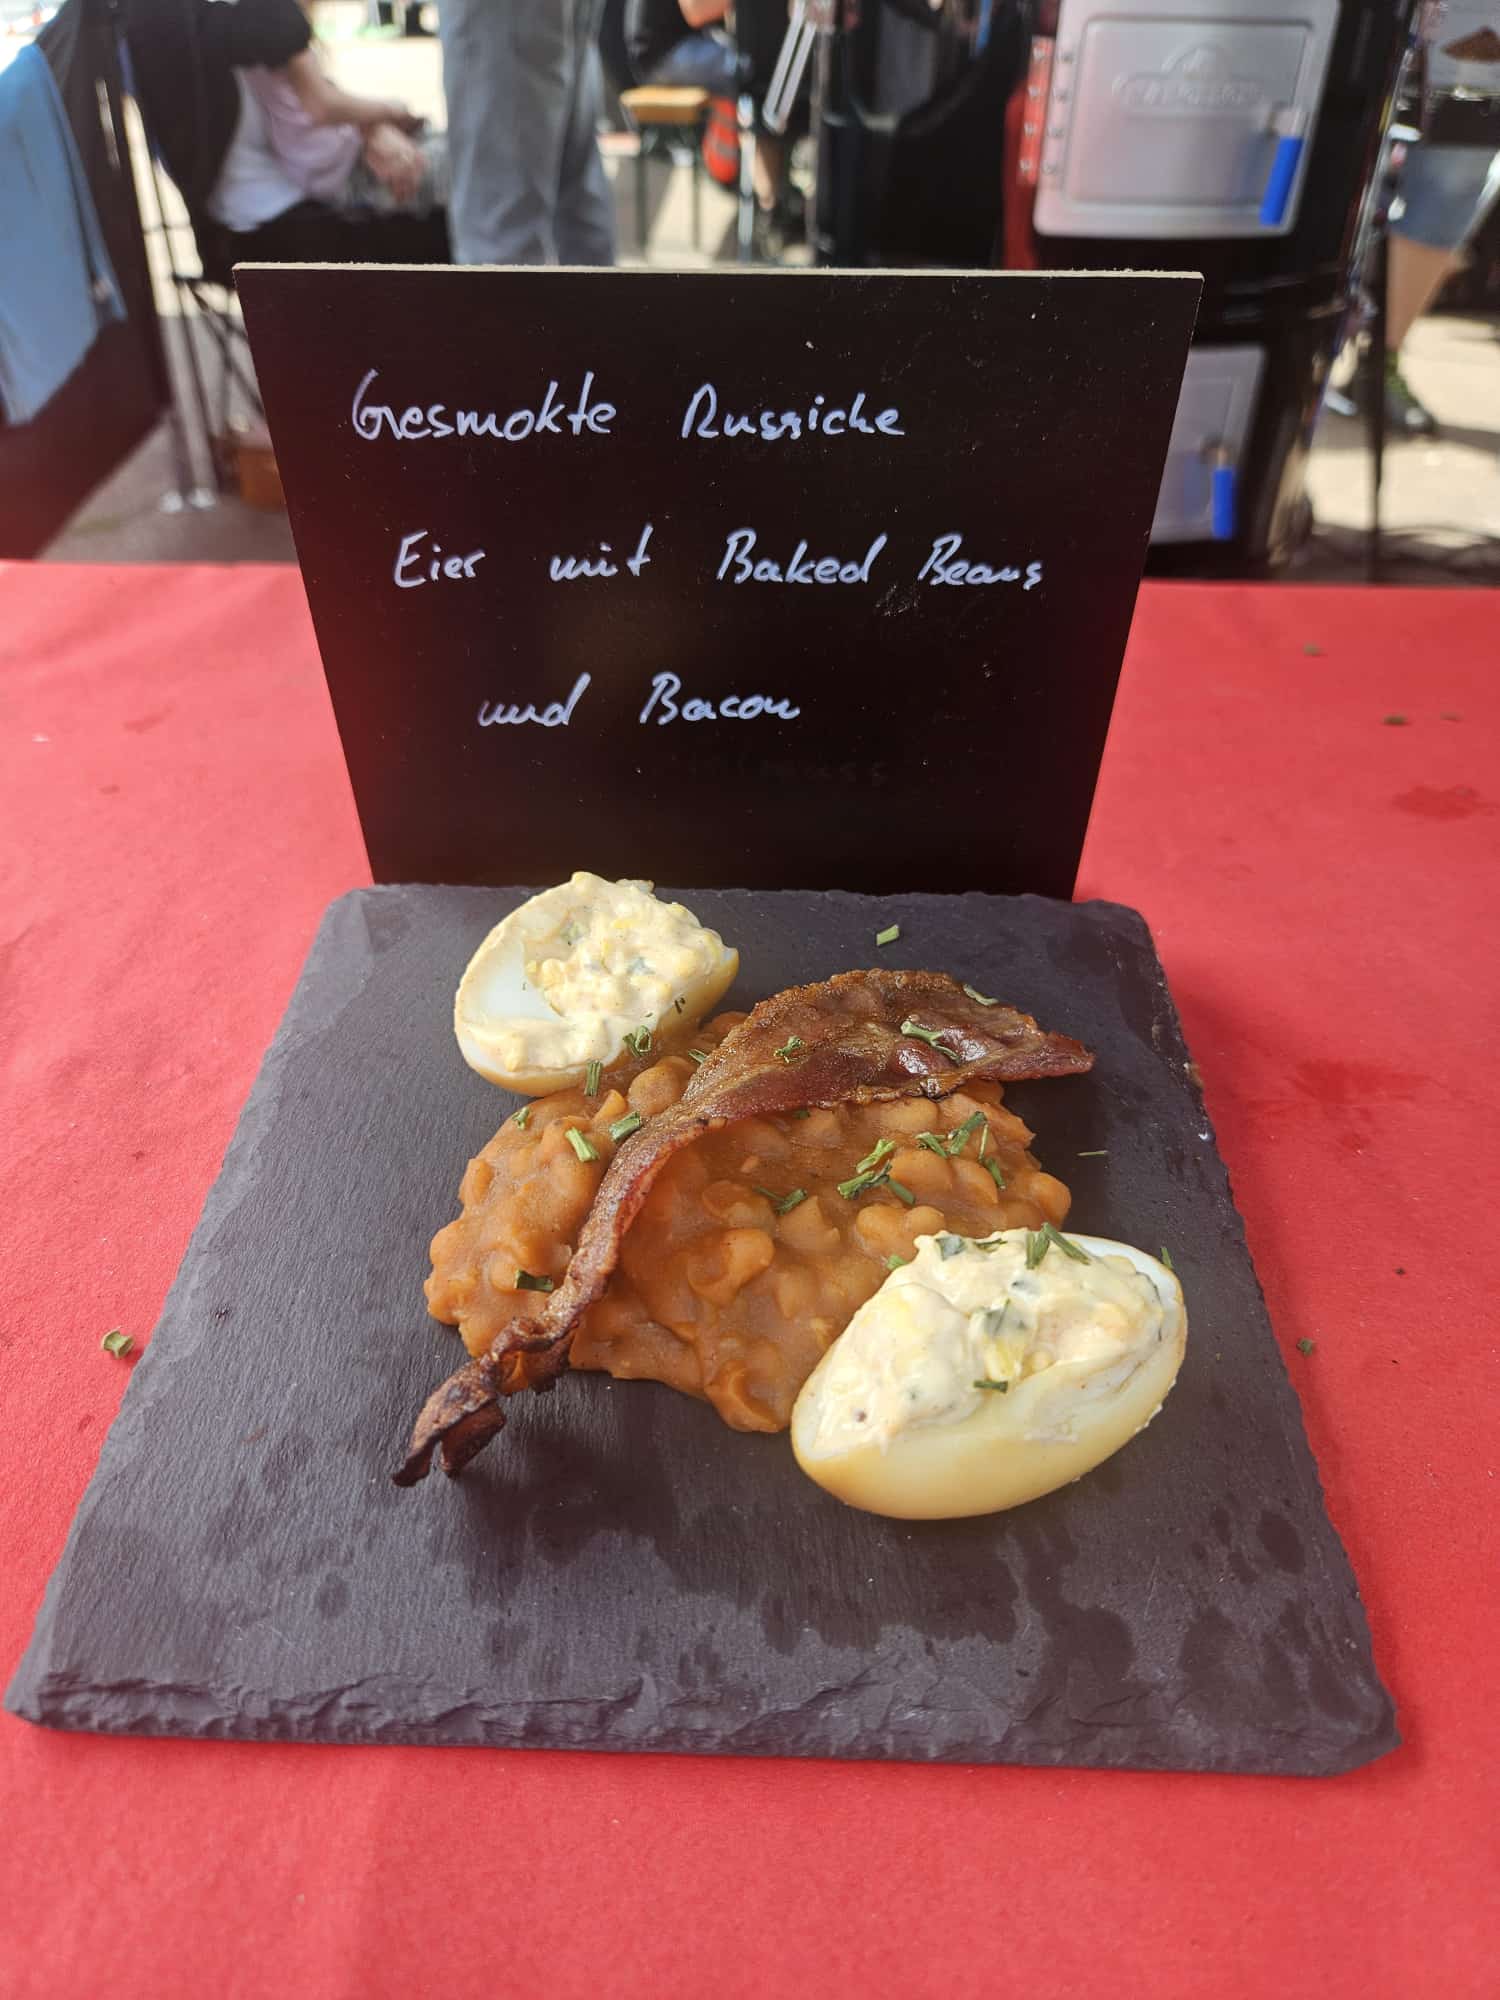 Gesmokte Russiche
Eier mit Baked Beans
und Bacon